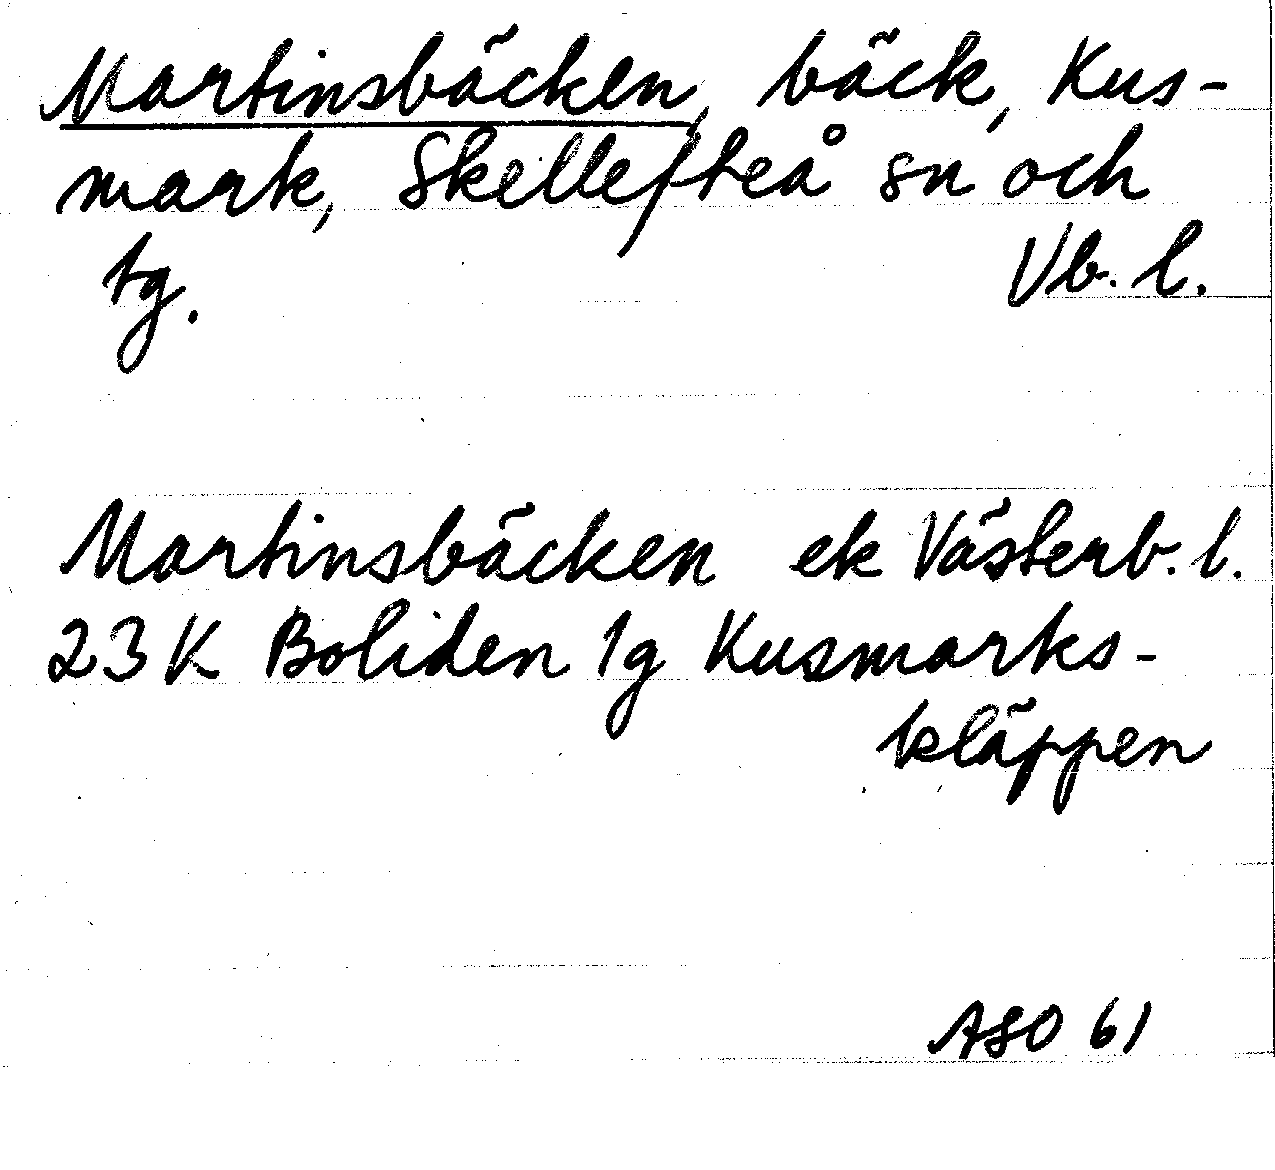 Martinsbäcken, bäck, Kus-
mark, Skellefteå sn och
tg. Vb. l.
Martinsbäcken ek Västerb. l.
23K Boliden 1g Kusmarks-
kläppen
ASO 61